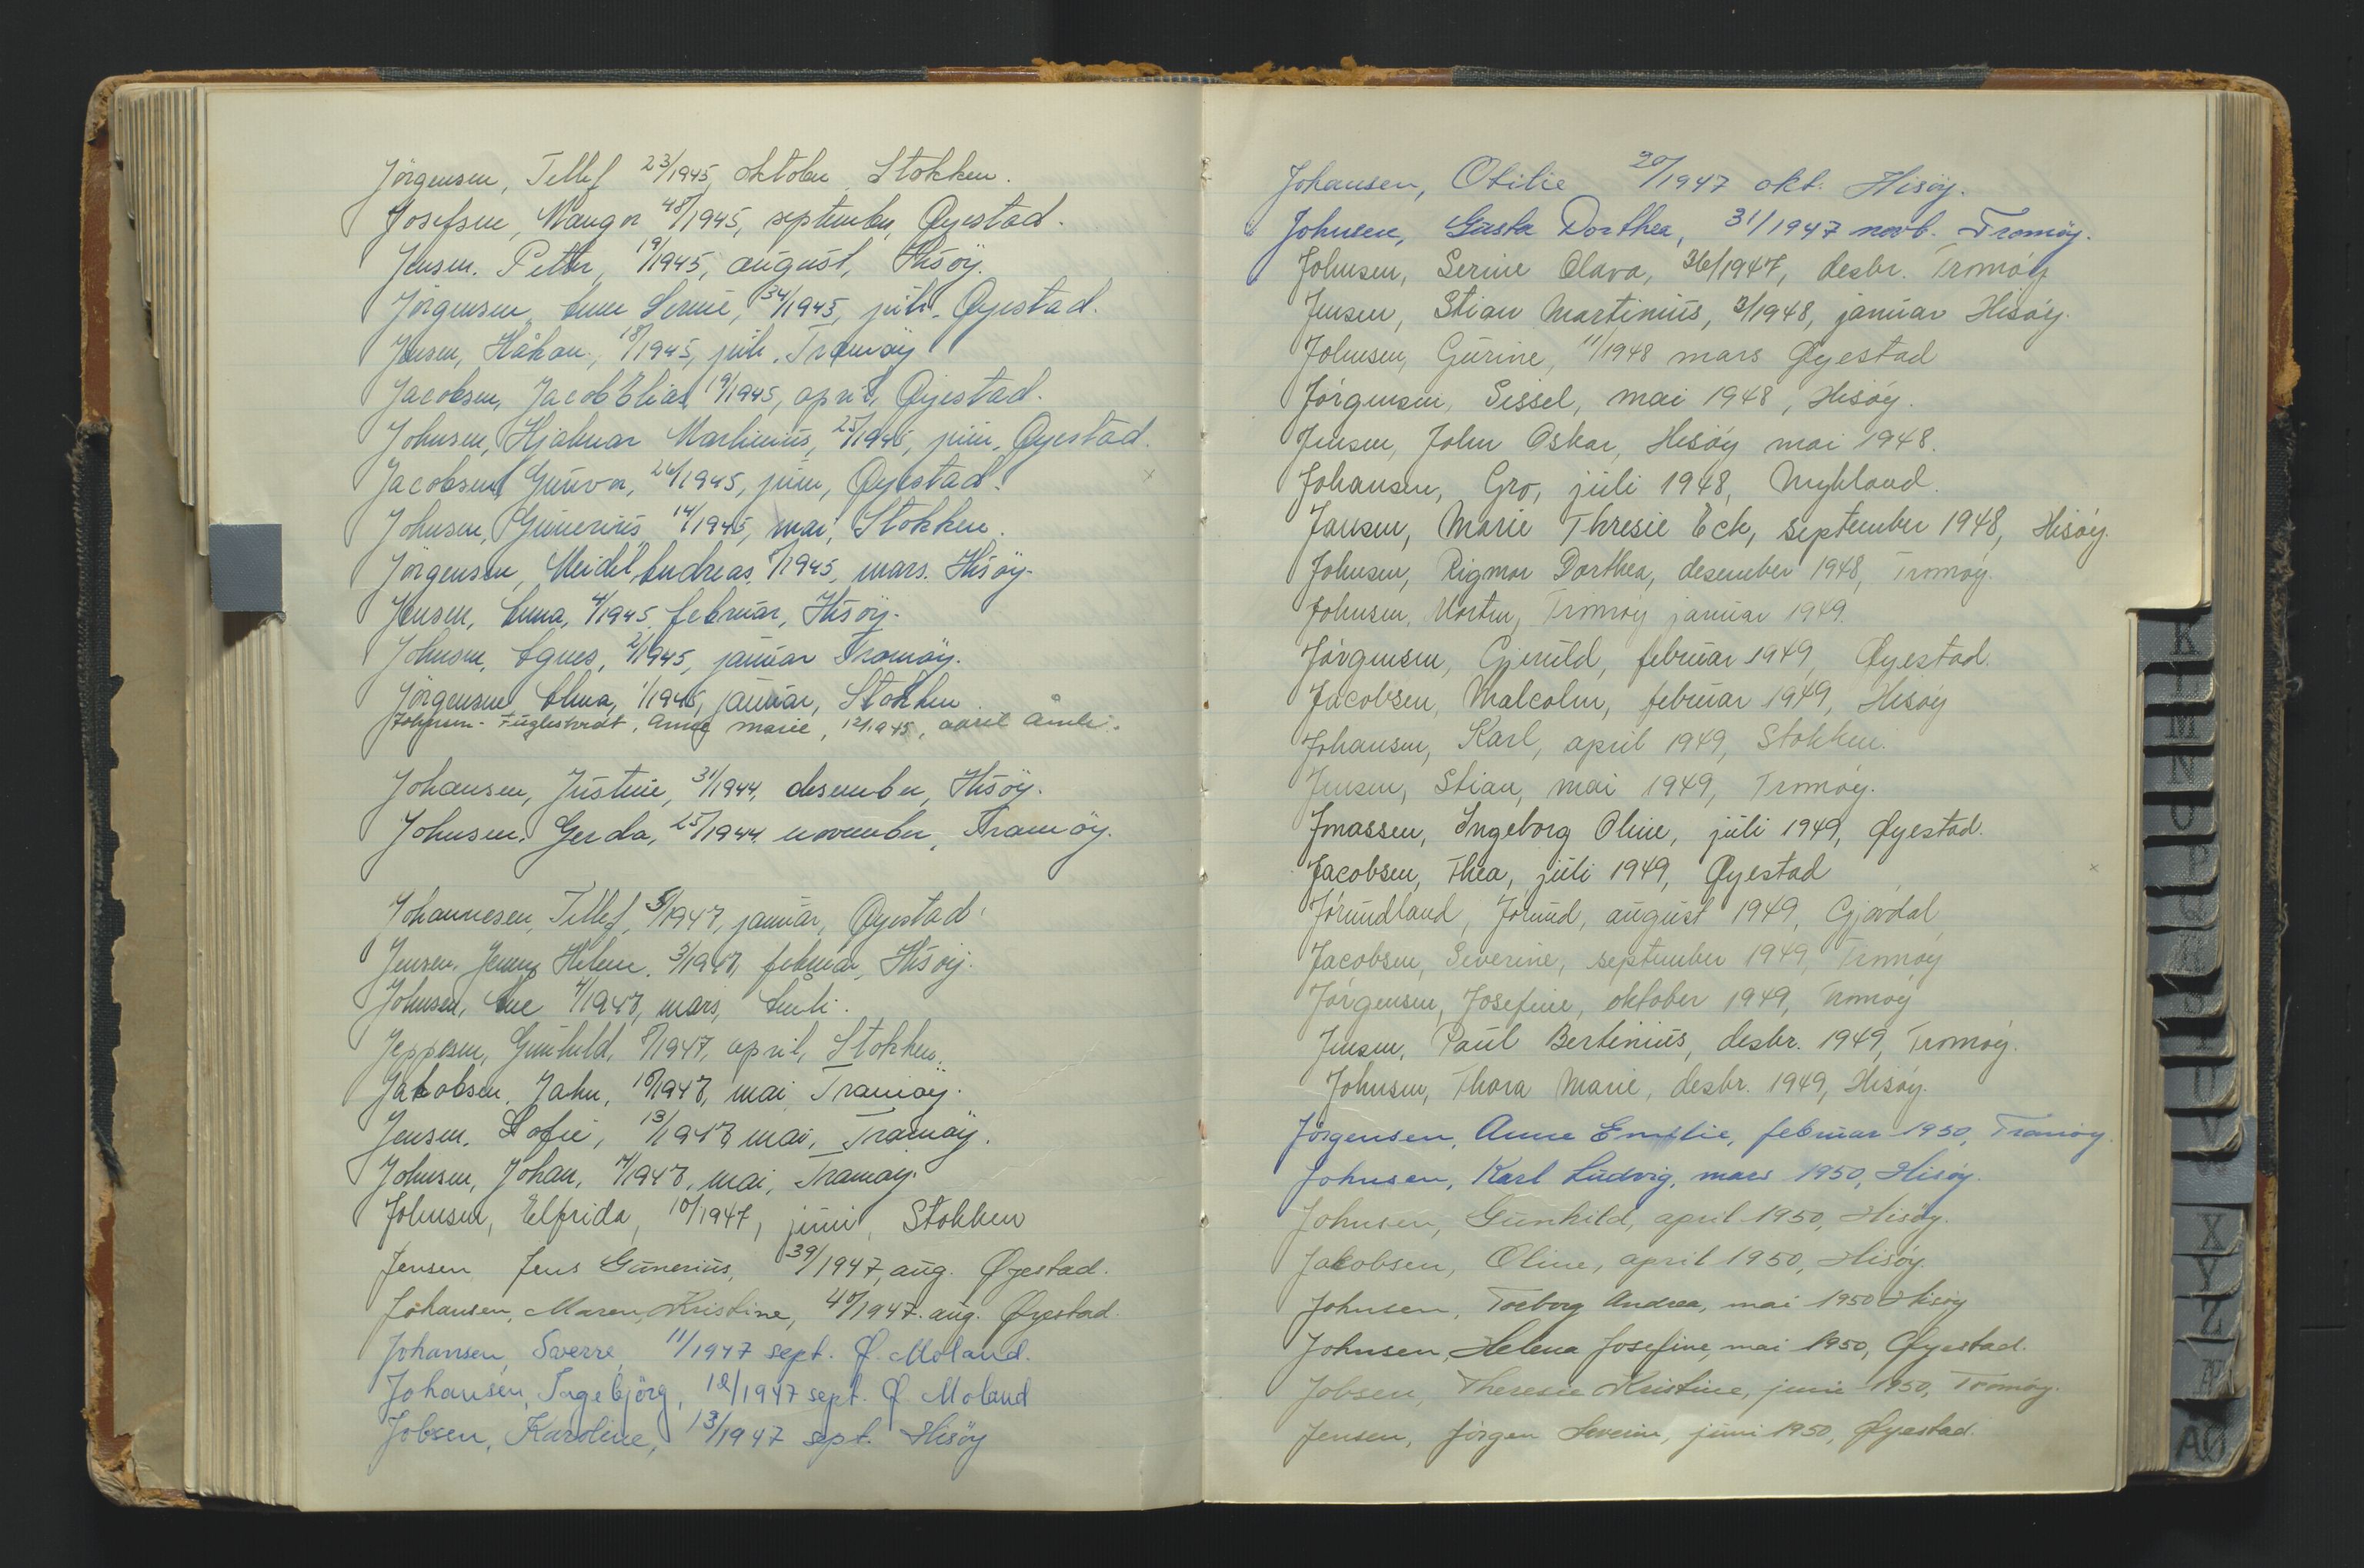 Jörgensen, Tellef 23/1945, oktober, Stokken.
Josefsen, 48/1945, september, Øyestad.
Jensen, Petter, 19/1945, august, Hisöy.
Jörgensen, Anne Serine, 34/1945, juli. Øyestad.
Jensen, Håkon, 18/1945, juli, Tromöy
Jacobsen, Jacob Elias, 19/1945, april, Øyestad.
Johnsen, Hjalmar Martinius, 25/1945, juni, Øyestad.
Jacobsen, Gunvor, 26/1945, juni, Øyestad.
Johnsen, Gunerius, 14/1945, mai, Stokken.
Jörgensen, Meidel Andreas, 1945, mars. Hisöy.
Jensen, Anna, 4/1945, februar, Hisöy.
Johnsen, Agnes, 2/1945, januar Tromöy.
Jörgensen Alma, 1/1945, januar, Stokken.
Johnsen-Fuglestvedt, Anne Marie, 12/1945, april Åmli.
Johansen, Justine, 31/1944, desember, Hisöy.
Johnsen, Gerda, 25/1944, november, Tromöy.
Johannesen, Tellef, 5/1947, januar, Øyestad.
Jensen, Jenny Helene, 3/1947, februar, Hisöy.
Johnsen, Ane 4/1947, mars, Åmli.
Jeppesen, Gunhild, 8/1947, april, Stokken.
Jakobsen, John, 10/1947, mai, Tromöy.
Jensen, Sofie, 13/1947 mai, Tromöy.
Johnsen, Johan, 7/1947, mai, Tromöy.
Johnsen, Elfrida, 10/1947, juni, Stokken
Jensen, Jens Gunerius, 39/1947, aug. Øyestad.
Johansen, Maren Kristine, 40/1947. aug. Øyestad.
Johansen, Sverre, 11/1947 sept. Ø. Moland.
Johansen, Ingebjörg, 12/1947 sept. Ø. Moland
Jobsen, Karoline, 13/1947 sept. Hisöy
Johansen, Otilie 20/1947 okt. Hisöy.
Johnsen, Gusta Dorthea, 31/1947 novb. Tromöy.
Johnsen, Serine Olava, 36/1947, desbr. Tromöy
Jensen, Stian Martinius, 2/1948, januar Hisöy.
Johnsen, Gurine, 11/1948 mars Øyestad
Jörgensen, Sissel, mai 1948, Hisöy.
Jensen, John Oskar, Hisöy mai 1948.
Johansen, Gro, juli 1948, Mykland.
Jansen, Marie Thresie Eck, september 1948, Hisöy.
Johnsen, Rigmor Dorthea, desember 1948, Tromöy.
Johnsen, Morten, Tromöy januar 1949.
Jörgensen, Gjeruld, februar 1949, Øyestad.
Jacobsen, Malcolm, februar 1949, Hisöy
Johansen, Karl, april 1949, Stokken.
Jensen, Stian, mai 1949, Tromöy.
Jonassen, Ingeborg Oline, juli 1949, Øyestad.
Jacobsen, Thea, juli 1949, Øyestad
Jörundland, Jorund, august 1949, Gjövdal
Jacobsen, Severine, september 1949, Tromöy
Jörgensen, Josefine, oktober 1949, Tromöy
Jensen, Paul Bertinius, desbr. 1949, Tromöy.
Johnsen, Thora Marie, desbr. 1949, Hisöy.
Jörgensen, Anne Emilie, februar 1950, Tromöy.
Johnsen, Karl Ludvig, mars 1950, Hisöy.
Johnsen, Gunhild, april 1950, Hisöy.
Jakobsen, Oline, april 1950, Hisöy.
Johnsen, Torborg Andrea, mai 1950 Hisöy
Johnsen, Helena Josefine, mai 1950, Øyestad.
Jobsen, Theresie Kristine, juni 1950, Tromöy.
Jensen, Jörgen Severin, juni 1950, Øyestad.
K
L
M
N
O
P
U
V
X
Y
Z
AÖ